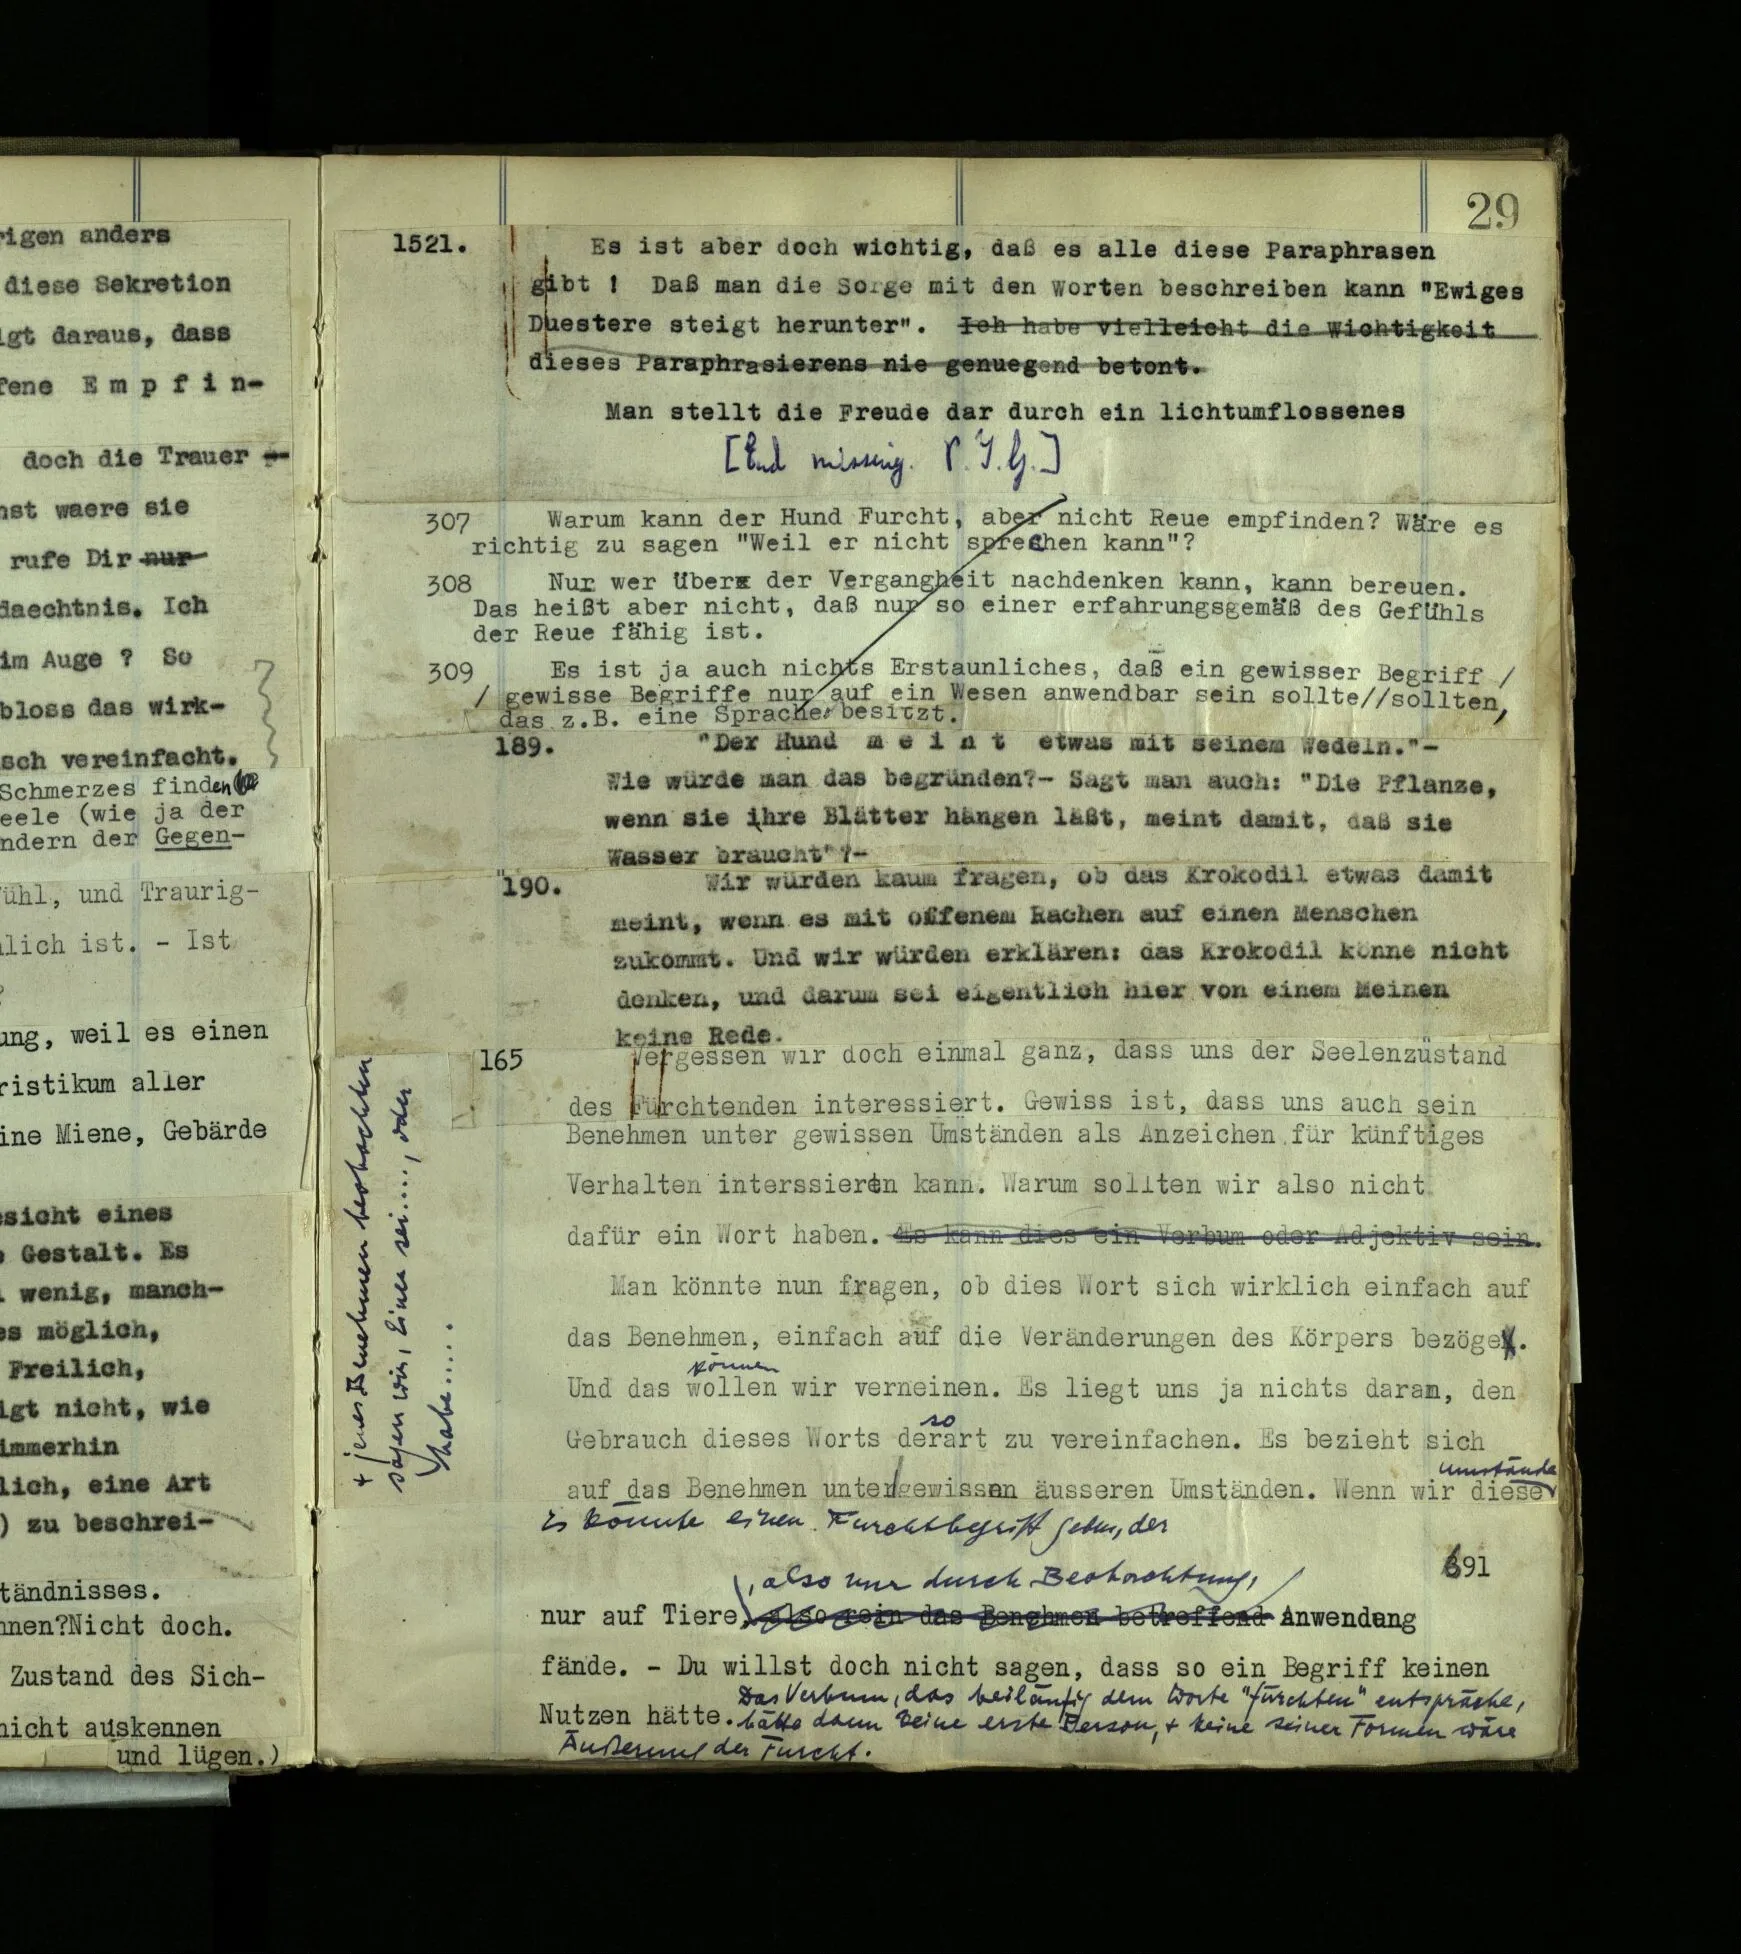 rigen anders
diese Sekretion
lgt daraus, dass
fene E m p f i n-
doch die Trauer
nst waere sie
rufe Dir nur
daechtnis. Ich
im Auge ? So
bloss das wirk-
sch vereinfacht.
Schmerzes finden
eele (wie ja der
ndern der Gegen-
ühl, und Traurig-
lich ist. - Ist
?
ung, weil es einen
ristikum aller
ine Miene, Gebärde
esicht eines
e Gestalt. Es
wenig, manch-
es möglich,
Freilich,
igt nicht, wie
immerhin
lich, eine Art
) zu beschrei-
tändnisses.
nnen?Nicht doch.
Zustand des Sich-
nicht auskennen
und lügen.)
29
1521. Es ist aber doch wichtig, daß es alle diese Paraphrasen
gibt ! Daß man die Sorge mit den Worten beschreiben kann "Ewiges
Duestere steigt herunter". Ich habe vielleicht die Wichtigkeit
dieses Paraphrasierens nie genuegend betont.
Man stellt die Freude dar durch ein lichtumflossenes
[End missing. P.T.G.]
307 Warum kann der Hund Furcht, aber nicht Reue empfinden? Wäre es
richtig zu sagen "Weil er nicht sprechen kann"?
308 Nur wer überx der Vergangheit nachdenken kann, kann bereuen.
Das heißt aber nicht, daß nur so einer erfahrungsgemäß des Gefühls
der Reue fähig ist.
309 Es ist ja auch nichts Erstaunliches, daß ein gewisser Begriff /
/ gewisse Begriffe nur auf ein Wesen anwendbar sein sollte//sollten,
das z.B. eine Sprache besitzt.
189. "Der Hund m e i n t etwas mit seinem Wedeln."-
Wie würde man das begründen?- Sagt man auch: "Die Pflanze,
wenn sie ihre Blätter hängen läßt, meint damit, daß sie
Wasser braucht"?-
190. Wir würden kaum fragen, ob das Krokodil etwas damit
meint, wenn es mit offenem Rachen auf einen Menschen
zukommt. Und wir würden erklären: das Krokodil könne nicht
denken, und darum sei eigentlich hier von einem Meinen
keine Rede.
165 Vergessen wir doch einmal ganz, dass uns der Seelenzüstand
des Fürchtenden interessiert. Gewiss ist, dass uns auch sein
Benehmen unter gewissen Umständen als Anzeichen für künftiges
Verhalten interssieren kann. Warum sollten wir also nicht
dafür ein Wort haben. Es kann dies ein Verbum oder Adjektiv sein.
Man könnte nun fragen, ob dies Wort sich wirklich einfach auf
das Benehmen, einfach auf die Veränderungen des Körpers bezöge.
können
Und das wollen wir verneinen. Es liegt uns ja nichts daran, den
so
Gebrauch dieses Worts derart zu vereinfachen. Es bezieht sich
Umstände
auf das Benehmen unter gewissen äusseren Umständen. Wenn wir diese
+ jenes Benehmen beobachten
sagen wir, Einer sei...., oder
habe.....
Es könnte einen Furchtbegriff geben, der
391
, also nur durch Beobachtung,
nur auf Tiere, also rein das Benehmen betreffend Anwendung
fände. - Du willst doch nicht sagen, dass so ein Begriff keinen
Das Verbum, das beiläufig dem Worte "fürchten" entspräche,
Nutzen hätte. hätte dann keine erste Person, + keine seiner Formen wäre
Äußerung der Furcht.